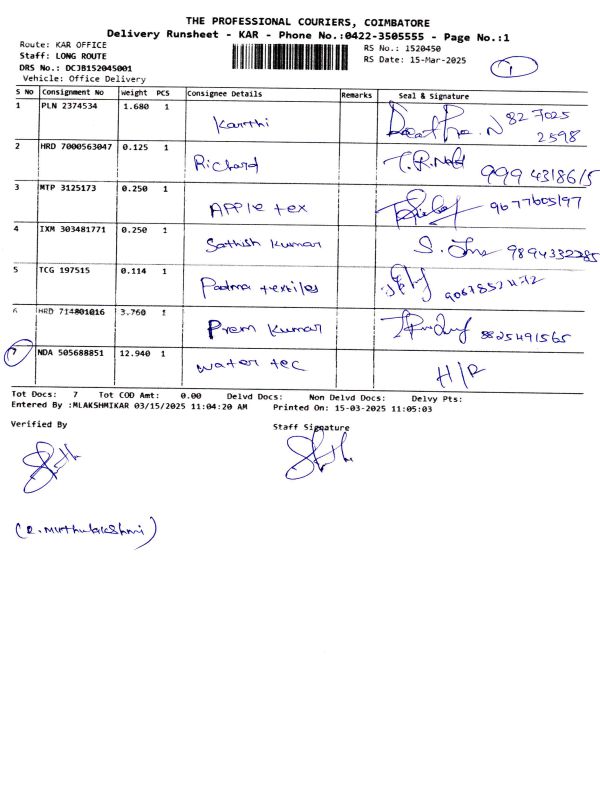 THE PROFESSIONAL COURIERS, COIMBATORE
Delivery Runsheet - KAR - Phone No.:0422-3505555 - Page No.:1
Route: KAR OFFICE
RS No.: 1520450
Staff: LONG ROUTE
RS Date: 15-Mar-2025
1
DRS No.: DCJB152045001
Vehicle: Office Delivery
S No Consignment No Weight PCS Consignee Details Remarks Seal & Signature
1 PLN 2374534 1.680 1 Karthi 82 7025 2598
2 HRD 7000563047 0.125 1 Richard 999 4318615
3 MTP 3125173 0.250 1 Apple tex 9077605197
4 IXM 303481771 0.250 1 Sathish Kumar 9894332285
5 TCG 197515 0.114 1 Padma textiles
6 HRD 714801016 3.760 1 Prem Kumar 8825491565
7 NDA 505688851 12.940 1 water tec H/R
Tot Docs: 7 Tot COD Amt: 0.00 Delvd Docs: Non Delvd Docs: Delvy Pts:
Entered By :MLAKSHMIKAR 03/15/2025 11:04:20 AM Printed On: 15-03-2025 11:05:03
Verified By
Staff Signature